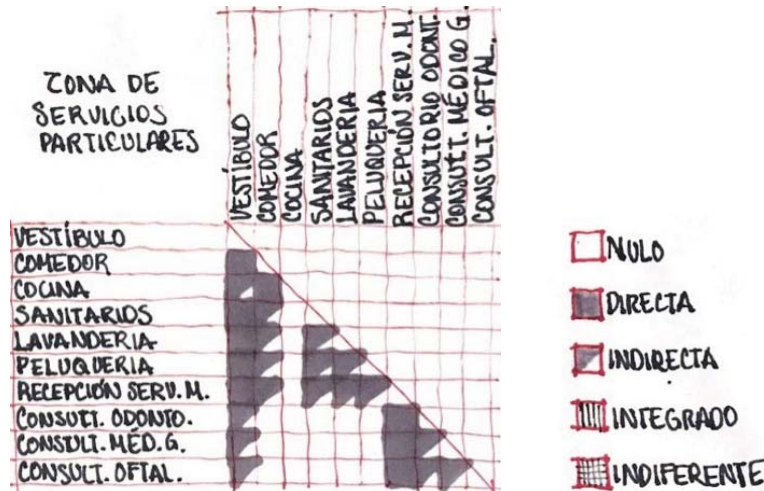 ZONA DE
SERVICIOS
PARTICULARES
VESTÍBULO
COMEDOR
COCINA
SANITARIOS
LAVANDERIA
PELUQUERIA
RECEPCIÓN SERV. M.
CONSULTORIO ODONT.
CONSULT. MÉDICO G.
CONSULT. OFTAL.
VESTÍBULO
COMEDOR
COCINA
SANITARIOS
LAVANDERIA
PELUQUERIA
RECEPCIÓN SERV. M.
CONSULT. ODONTO.
CONSULT. MÉD. G.
CONSULT. OFTAL.
NULO
DIRECTA
INDIRECTA
INTEGRADO
INDIFERENTE